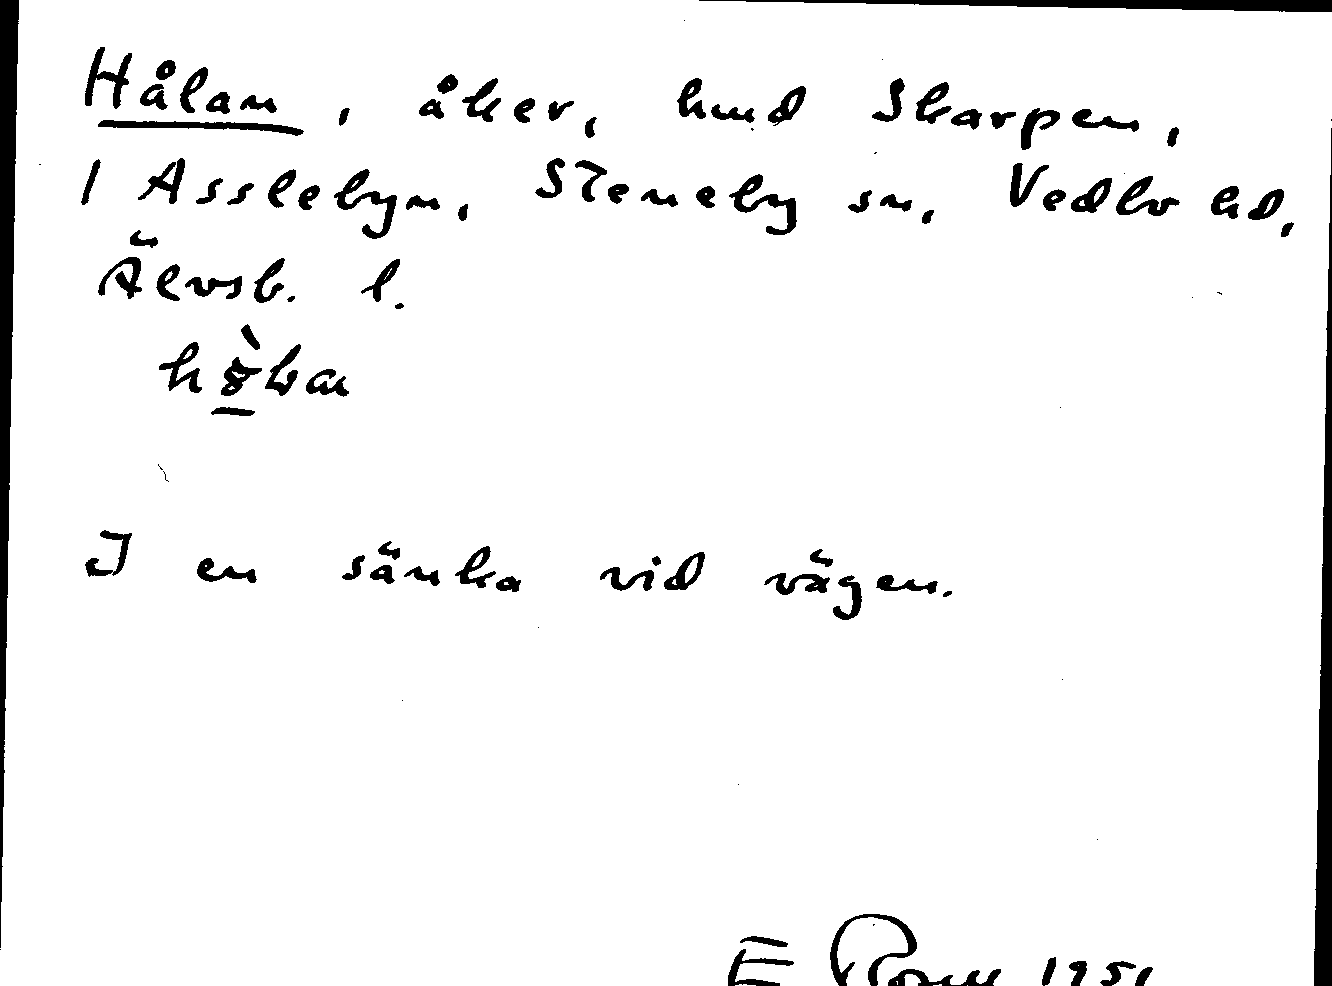 Hålan, åker, hmd Skarpen,
1 Asslebyn, Steneby sn, Vedbo hd,
Älvsb. l.
I en sänka vid vägen.
E 1951